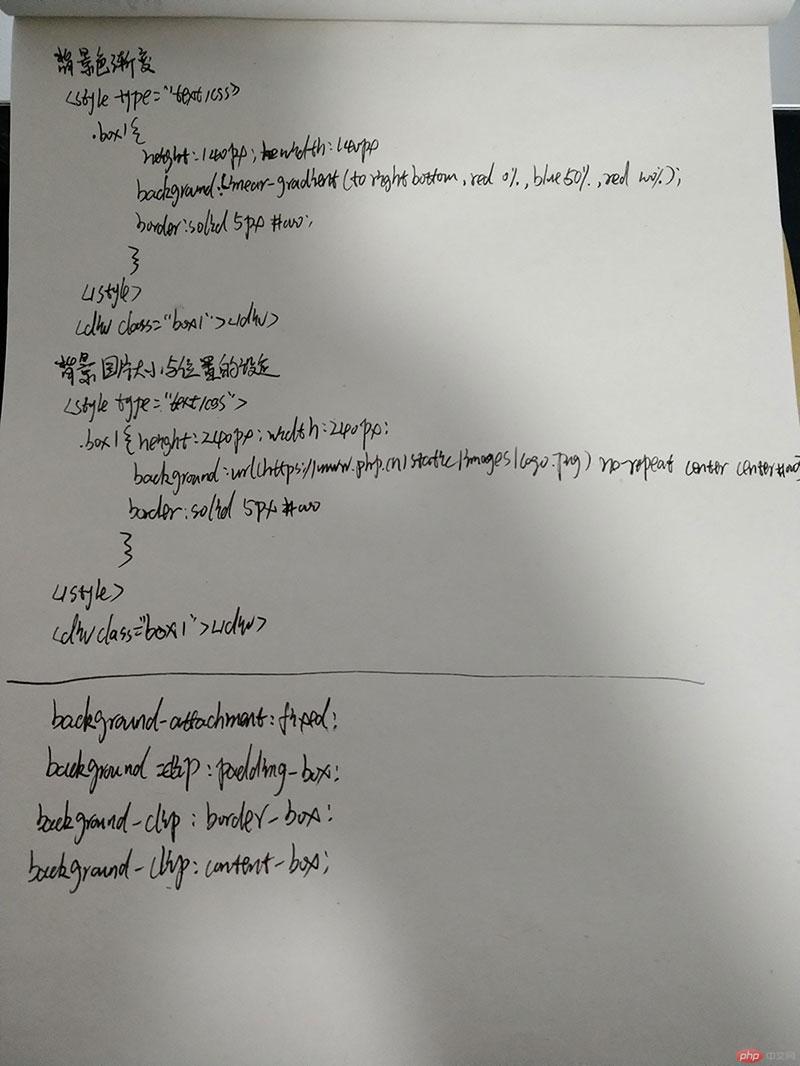 背景色渐变
<style type="text/css>
.box1{
height:140px; width:140px
background:linear-gradient(to right bottom,red 0%,blue 50%,red 100%);
border:solid 5px #000;
}
</style>
<div class="box1"></div>
背景图片大小与位置的设定
<style type="text/css">
.box1{height:240px;width:240px;
background:url(https://www.php.cn/static/images/logo.png) no-repeat center center
border:solid 5px #000
}
</style>
<div class="box1"></div>
background-attachment:fixed;
background-clip:padding-box;
background-clip:border-box;
background-clip:content-box;
php 中文网